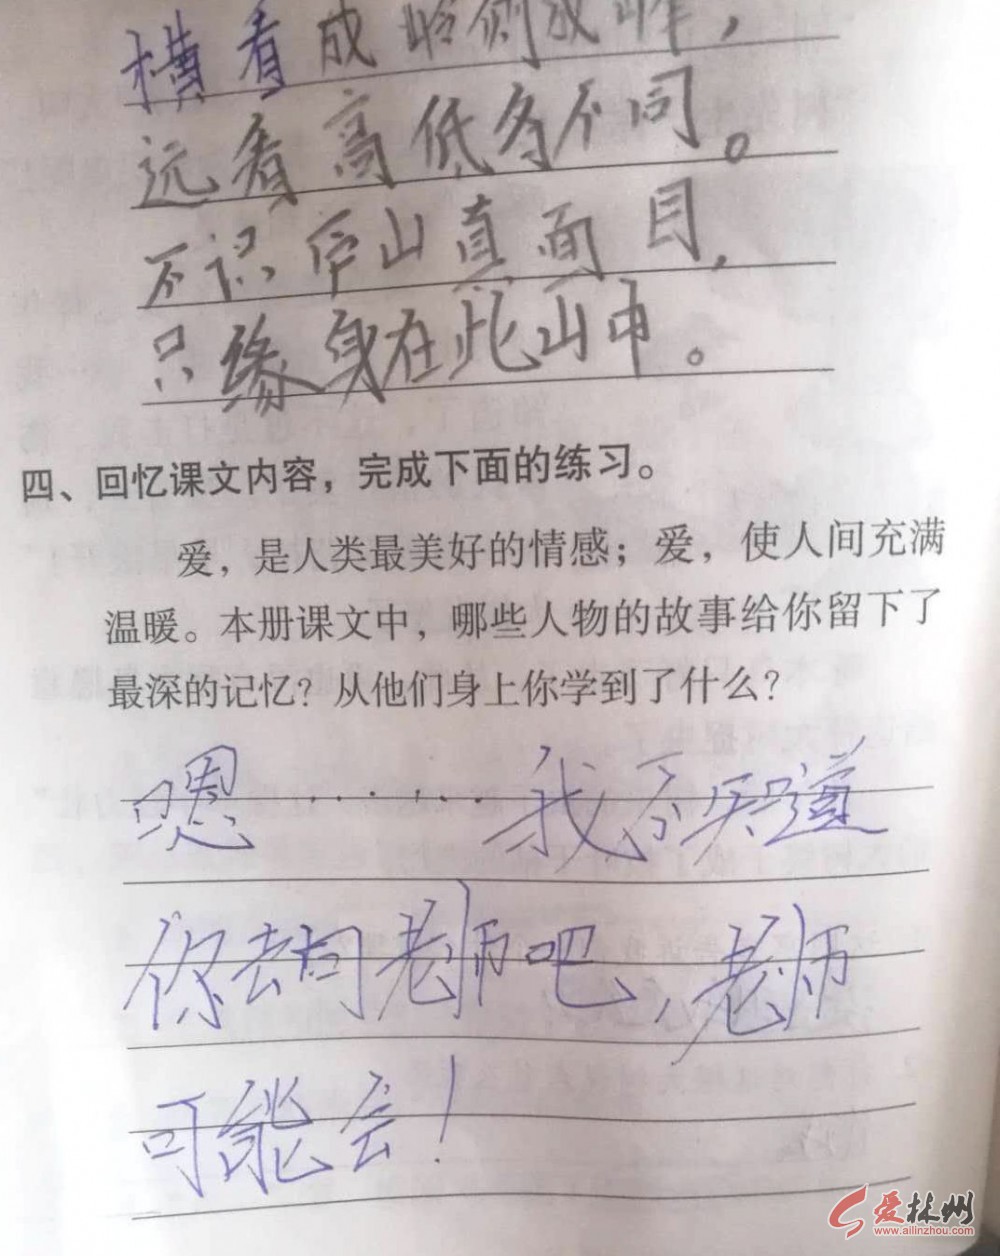 横看成岭侧成峰，
远看高低各不同。
不识庐山真面目，
只缘身在此山中。
四、回忆课文内容，完成下面的练习。
爱，是人类最美好的情感；爱，使人间充满
温暖。本册课文中，哪些人物的故事给你留下了
最深的记忆？从他们身上你学到了什么？
嗯……我不知道
你去问老师吧，老师
可能会！
爱林州
www.ailinzhou.com